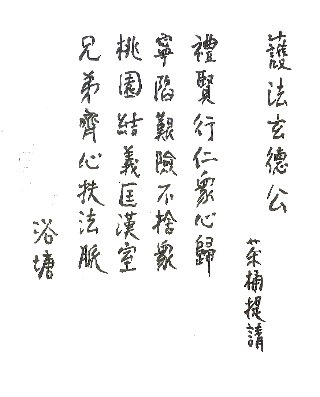 護法玄德公
茱桶提請
禮賢行仁眾心歸
寧陷艱險不捨眾
桃園結義匡漢室
兄弟齊心扶法脈
浴塘